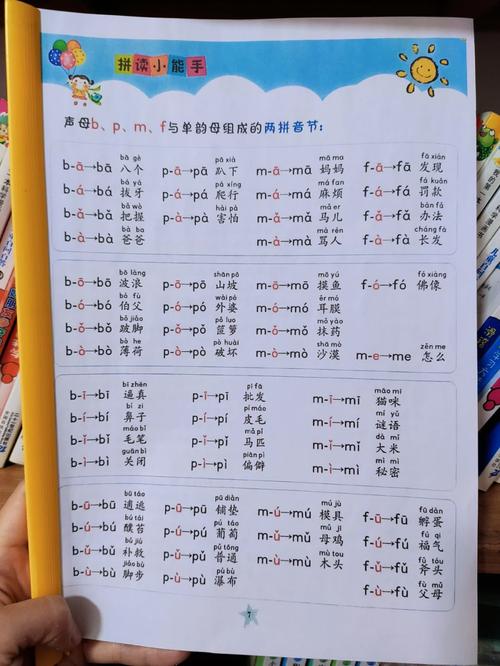 拼读小能手
声母b、p、m、f与单韵母组成的两拼音节：
bā gè pā xià mā ma fā xiàn
b-ā→bā 八个 p-ā→pā 趴下 m-ā→mā 妈妈 f-ā→fā 发现
bá yá pá xíng má fan fá kuǎn
b-á→bá 拔牙 p-á→pá 爬行 m-á→má 麻烦 f-á→fá 罚款
bǎ wò hài pà mǎ ér bàn fǎ
b-ǎ→bǎ 把握 p-à→pà 害怕 m-ǎ→mǎ 马儿 f-ǎ→fǎ 办法
bà ba mà rén cháng fà
b-à→bà 爸爸 m-à→mà 骂人 f-à→fà 长发
bō làng shān pō mō yú fó xiàng
b-ō→bō 波浪 p-ō→pō 山坡 m-ō→mō 摸鱼 f-ó→fó 佛像
bó fù wài pó ěr mó
b-ó→bó 伯父 p-ó→pó 外婆 m-ó→mó 耳膜
bǒ jiǎo pǒ luo mǒ yào
b-ǒ→bǒ 跛脚 p-ǒ→pǒ 笸箩 m-ǒ→mǒ 抹药
bò he pò huài shā mò zěn me
b-ò→bò 薄荷 p-ò→pò 破坏 m-ò→mò 沙漠 m-e→me 怎么
bī zhēn pī fā māo mī
b-ī→bī 逼真 p-ī→pī 批发 m-ī→mī 猫咪
bí zi pí máo mí yǔ
b-í→bí 鼻子 p-í→pí 皮毛 m-í→mí 谜语
máo bǐ mǎ pǐ dà mǐ
b-ǐ→bǐ 毛笔 p-ǐ→pǐ 马匹 m-ǐ→mǐ 大米
guān bì piān pì mì mì
b-ì→bì 关闭 p-ì→pì 偏僻 m-ì→mì 秘密
bū táo pū diàn mú jù fū dàn
b-ū→bū 逋逃 p-ū→pū 铺垫 m-ú→mú 模具 f-ū→fū 孵蛋
bú tái pú táo mǔ jī fú qì
b-ú→bú 醭苔 p-ú→pú 葡萄 m-ǔ→mǔ 母鸡 f-ú→fú 福气
bǔ jiù pǔ tōng mù tou fǔ tóu
b-ǔ→bǔ 补救 p-ǔ→pǔ 普通 m-ù→mù 木头 f-ǔ→fǔ 斧头
jiǎo bù pù bù fù mǔ
b-ù→bù 脚步 p-ù→pù 瀑布 f-ù→fù 父母
7